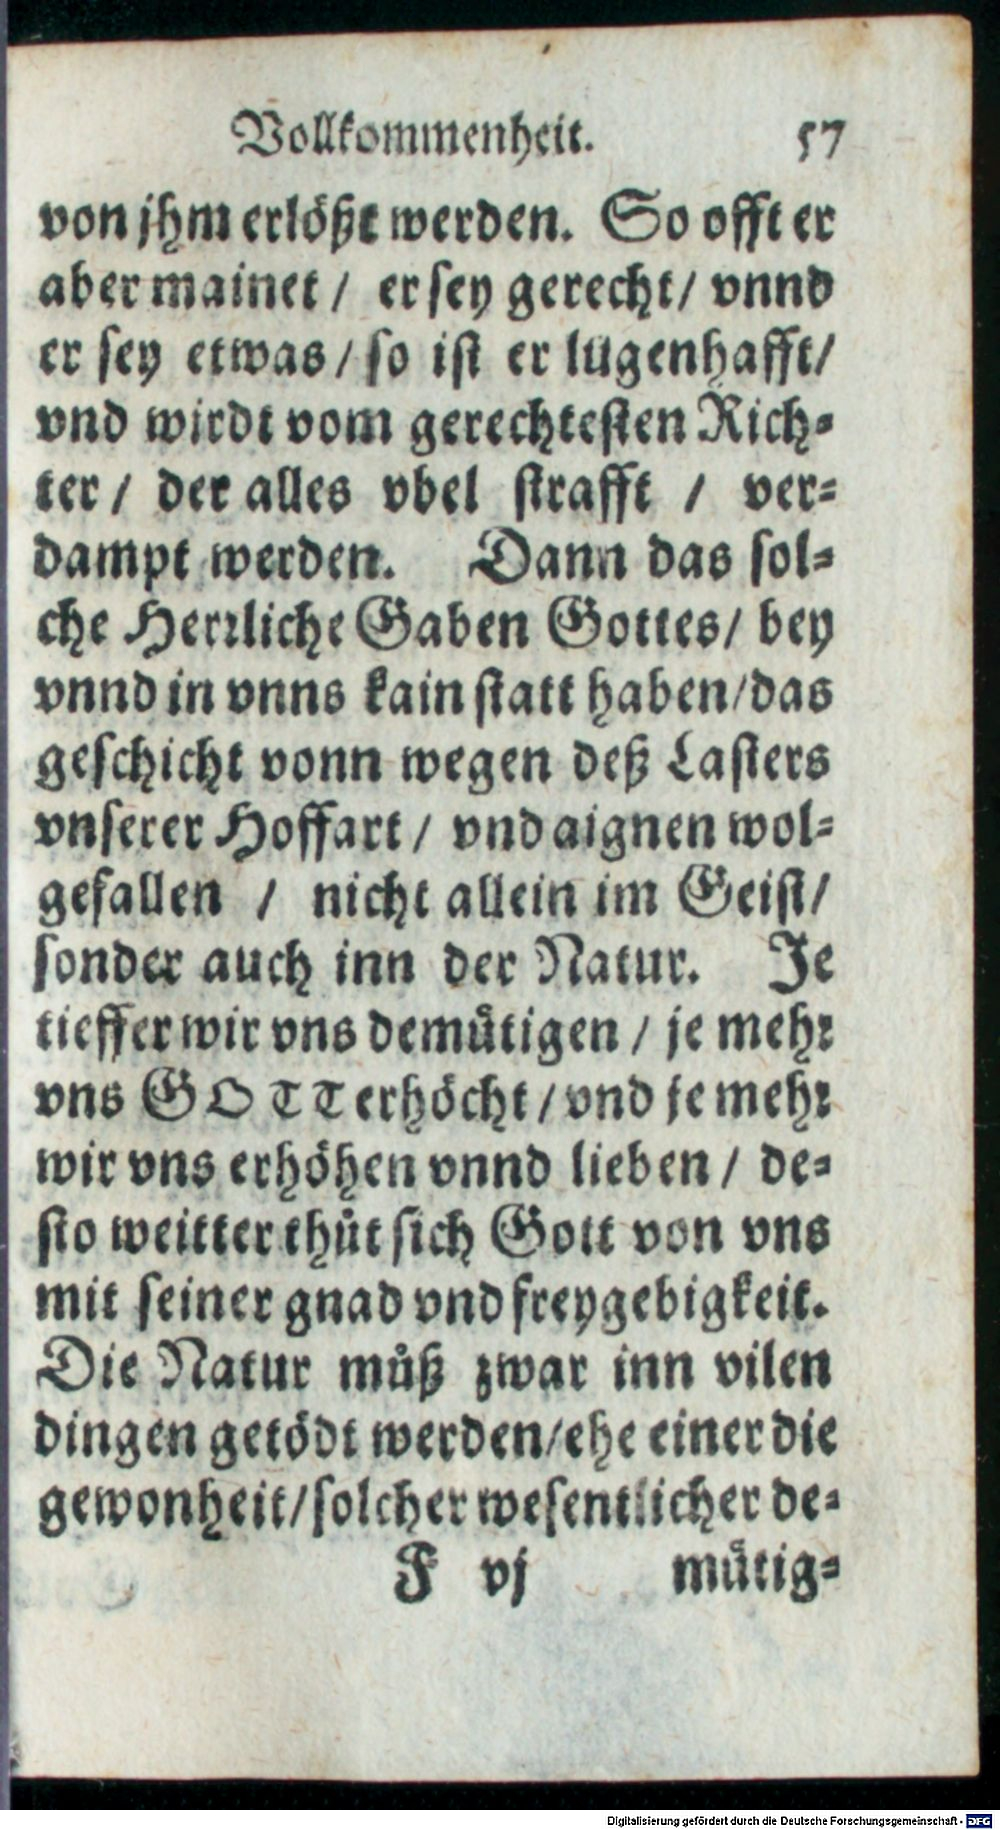 Vollkommenheit. 57
von jhm erlößt werden. So offt er
aber mainet / er sey gerecht / vnnd
er sey etwas / so ist er lugenhafft /
vnd wirdt vom gerechtesten Rich-
ter / der alles vbel strafft / ver-
dampt werden. Dann das sol-
che Herrliche Gaben Gottes / bey
vnnd in vnns kain statt haben / das
geschicht vonn wegen deß Lasters
vnserer Hoffart / vnd aignen wol-
gefallen / nicht allein im Geist /
sonder auch inn der Natur. Je
tieffer wir vns demuͤtigen / je mehr
vns GOTT erhoͤcht / vnd je mehr
wir vns erhoͤhen vnnd lieben / de-
sto weitter thuͤt sich Gott von vns
mit seiner gnad vnd freygebigkeit.
Die Natur muͦß zwar inn vilen
dingen getoͤdt werden / ehe einer die
gewonheit / solcher wesentlicher de-
F vj muͤtig-
Digitalisierung gefördert durch die Deutsche Forschungsgemeinschaft - DFG